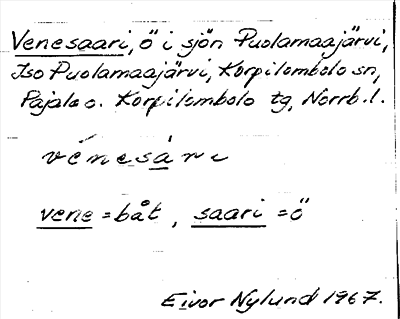 Venesaari, ö i sjön Puolamaajärvi,
Iso Puolamaajärvi, Korpilombolo sn,
Pajala o. Korpilombolo tg, Norrb. l.
vénesàri
vene = båt, saari = ö
Eivor Nylund 1967.